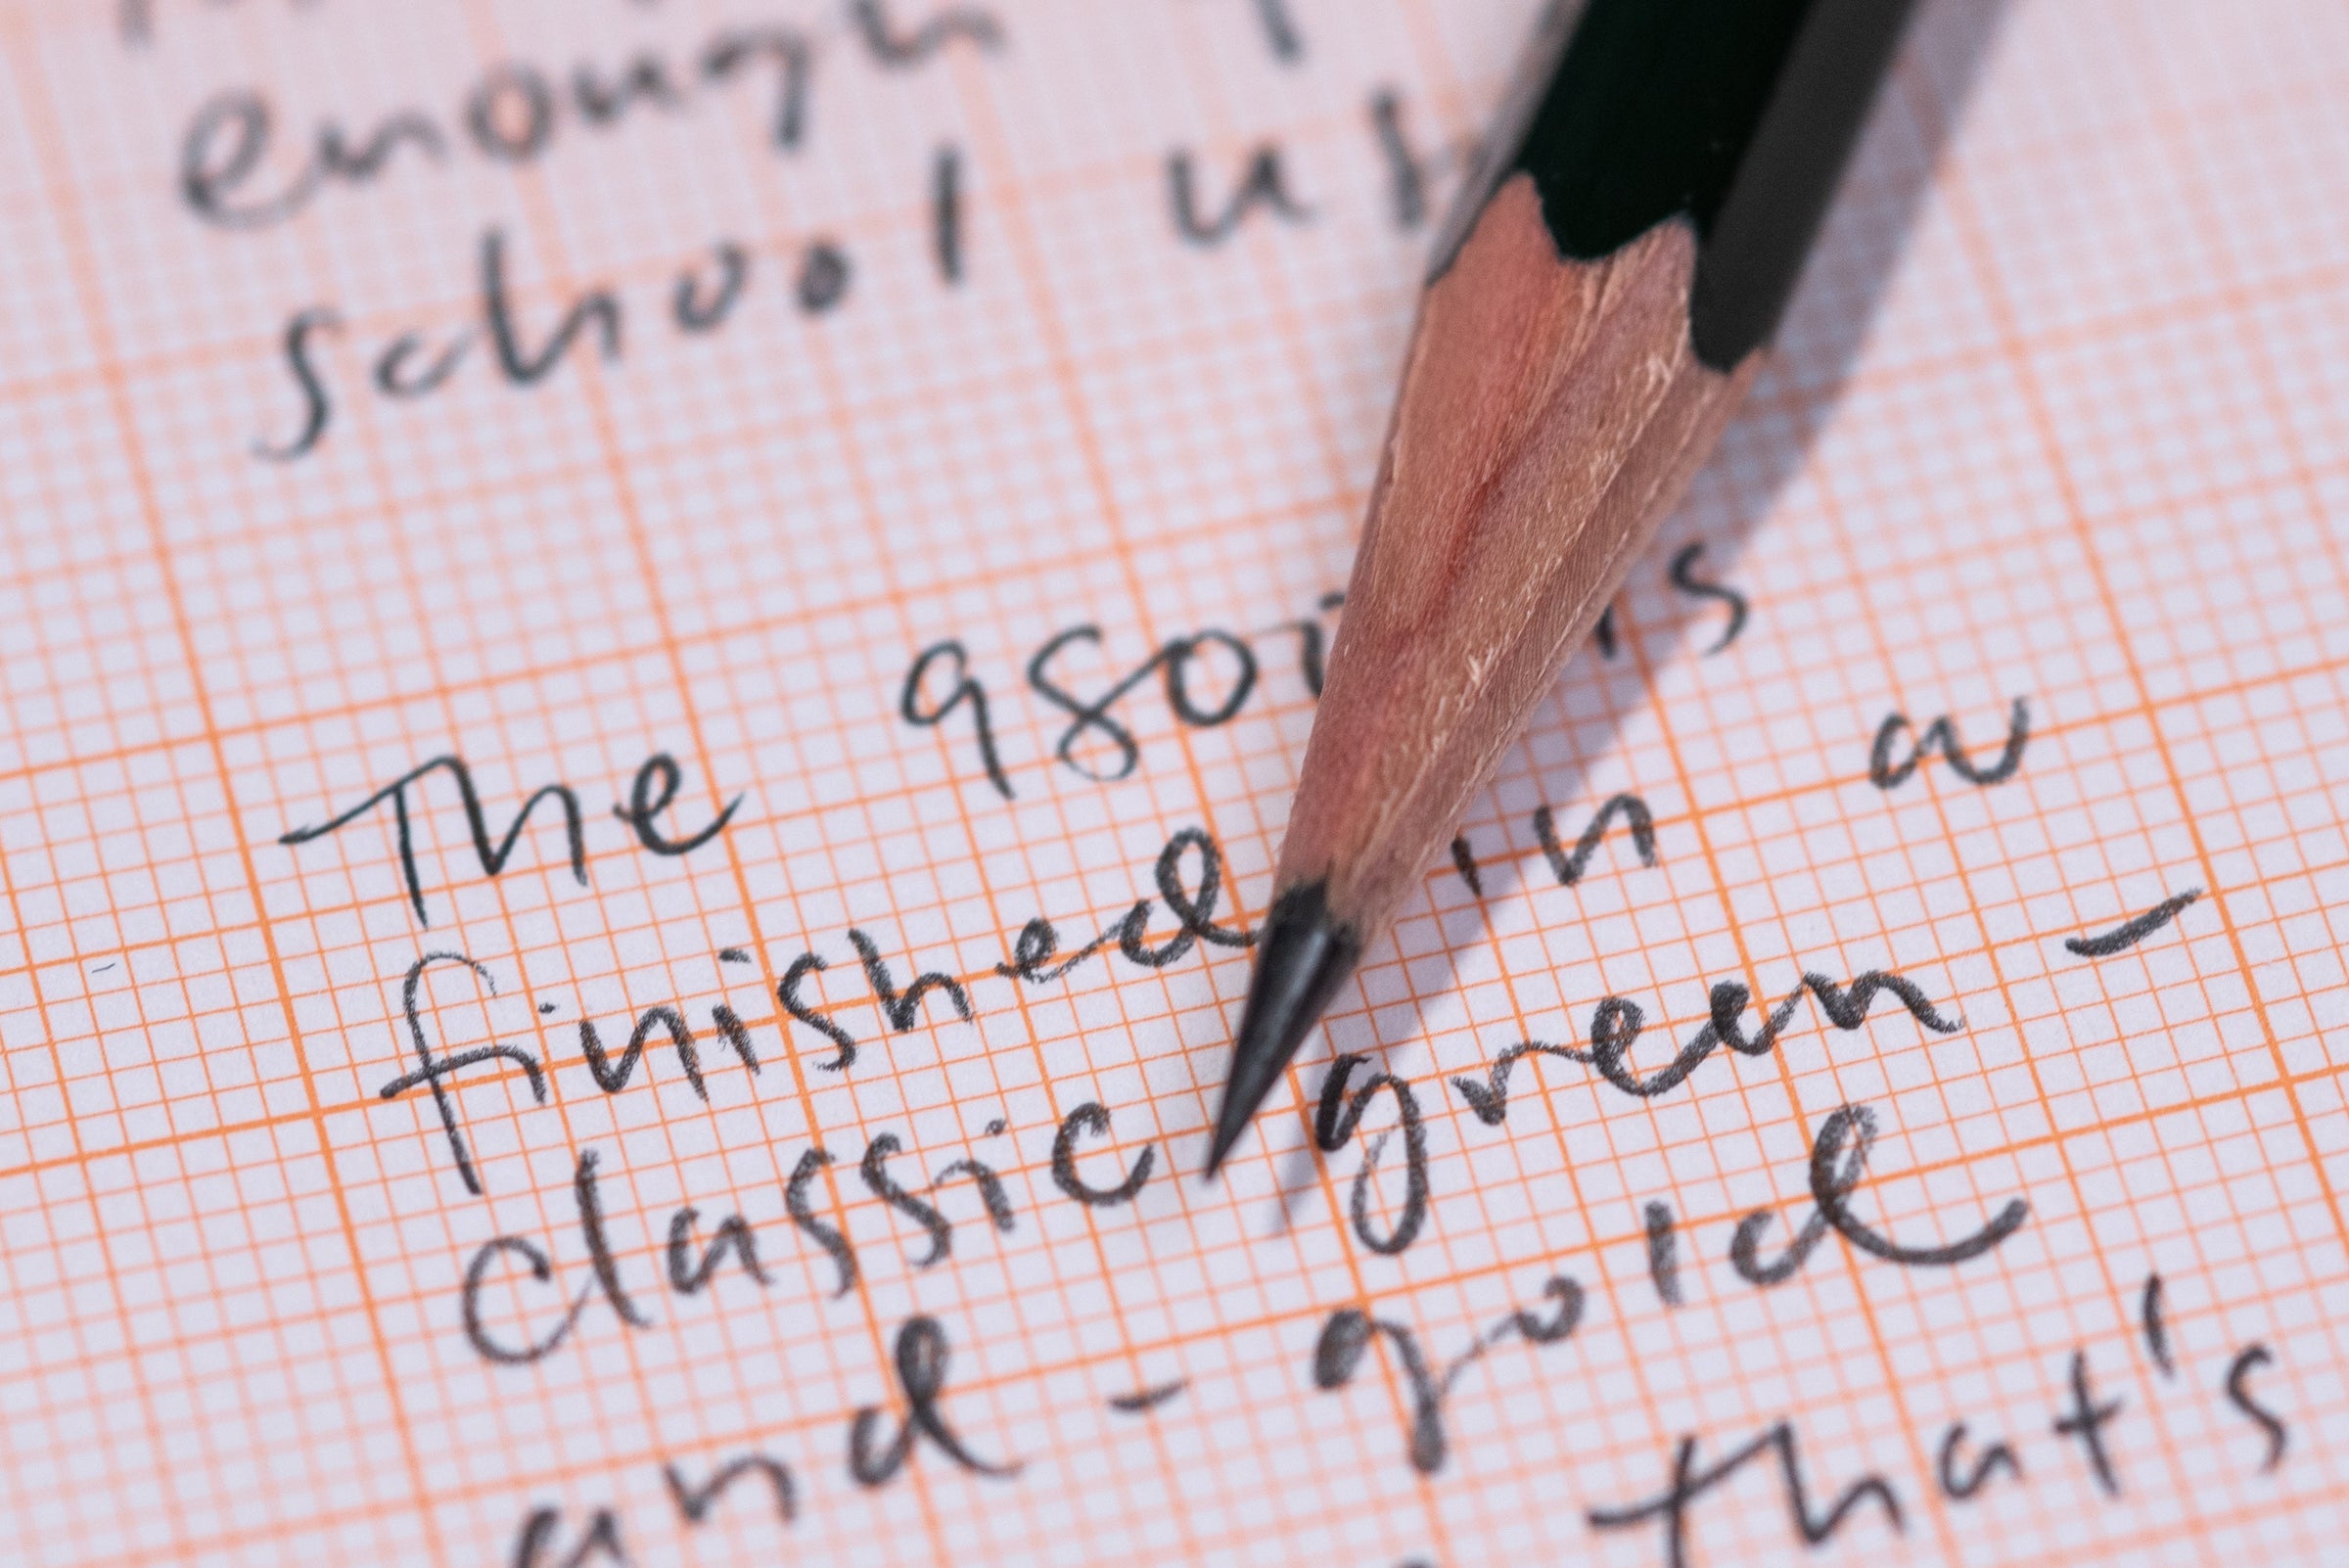 enough
school
The 980 is
finished in a
classic green-
and-gold
that's